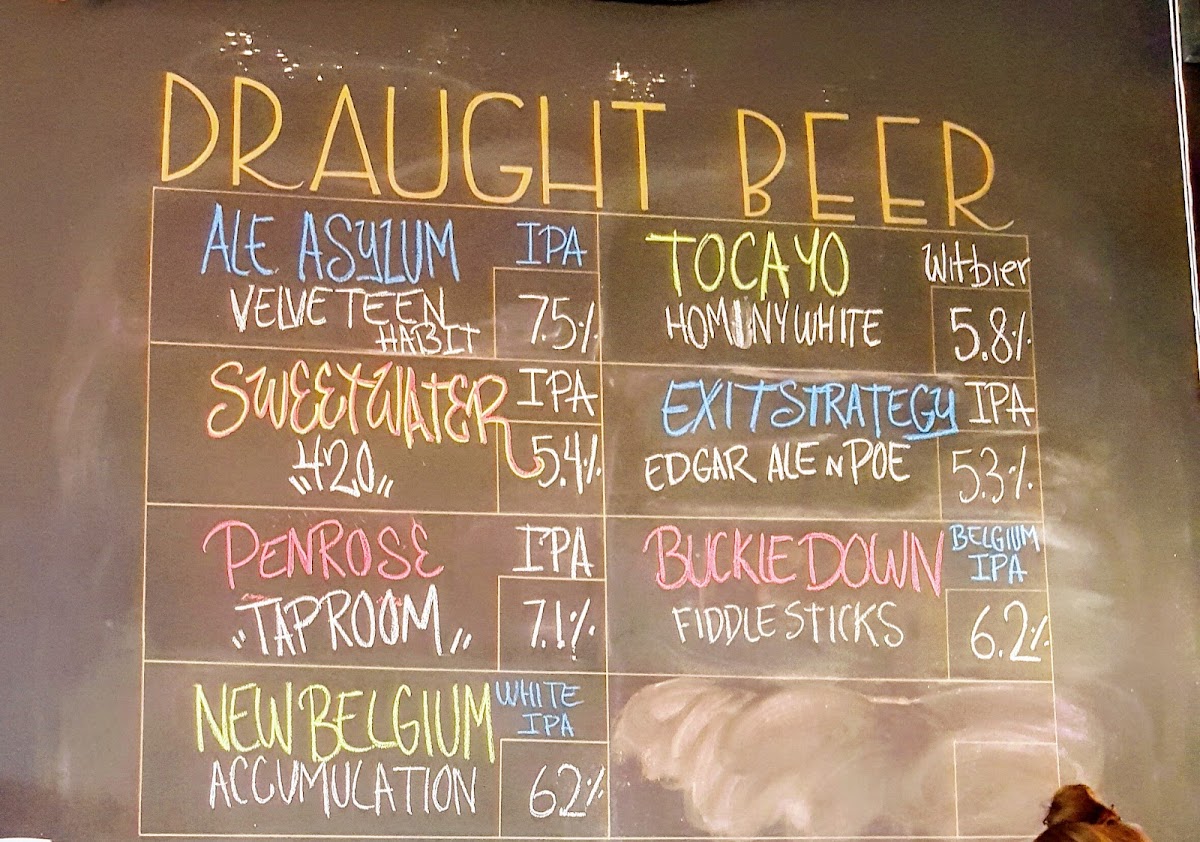 DRAUGHT BEER
ALE ASYLUM IPA
VELVETEEN
HABIT 7.5%
SWEETWATER IPA
"420" 5.4%
PENROSE IPA
"TAPROOM" 7.1%
NEW BELGIUM WHITE
IPA
ACCUMULATION 6.2%
TOCAYO Witbier
HOMINY WHITE 5.8%
EXIT STRATEGY IPA
EDGAR ALE N POE 5.3%
BUCKLEDOWN BELGIUM
IPA
FIDDLESTICKS 6.2%